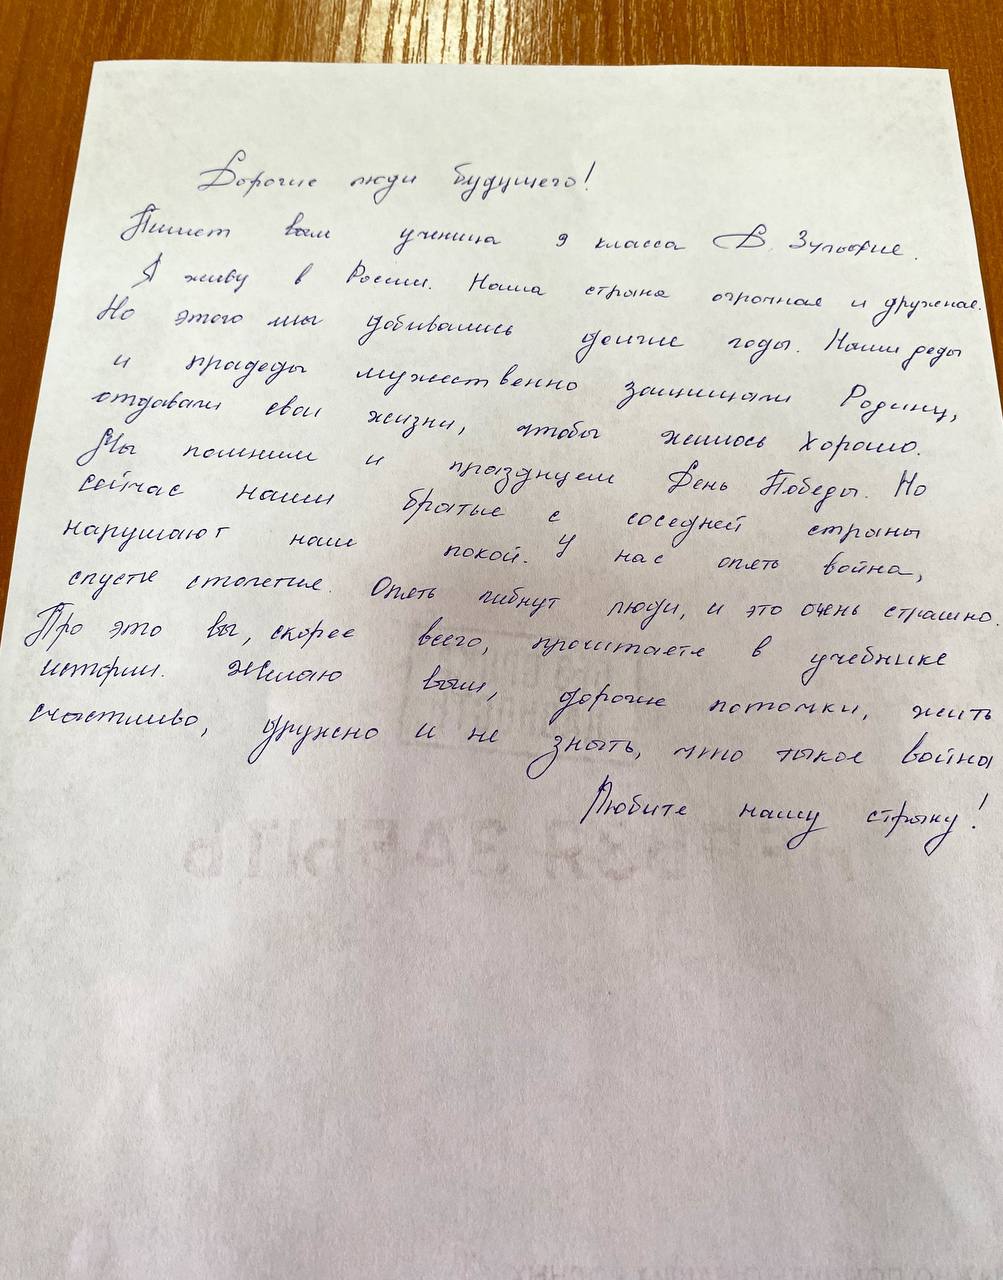 Дорогие люди будущего!
Пишет вам ученица 9 класса В. Зульфие.
Я живу в России. Наша страна огромная и дружная.
Но этого мы добивались долгие годы. Наши деды
и прадеды мужественно защищали Родину,
отдавали свои жизни, чтобы жилось хорошо.
Мы помним и празднуем День Победы. Но
сейчас наши братья с соседней страны
нарушают наш покой. У нас опять война,
спустя столетия. Опять гибнут люди, и это очень страшно.
Про это вы, скорее всего, прочитаете в учебнике
истории. Желаю вам, дорогие потомки, жить
счастливо, дружно и не знать, что такое война
Любите нашу страну!